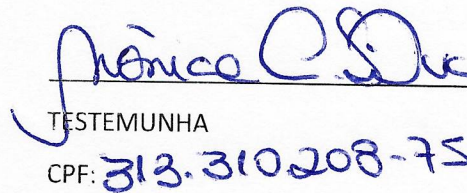 Mônica C. Silva
TESTEMUNHA
CPF: 313.310.208-75